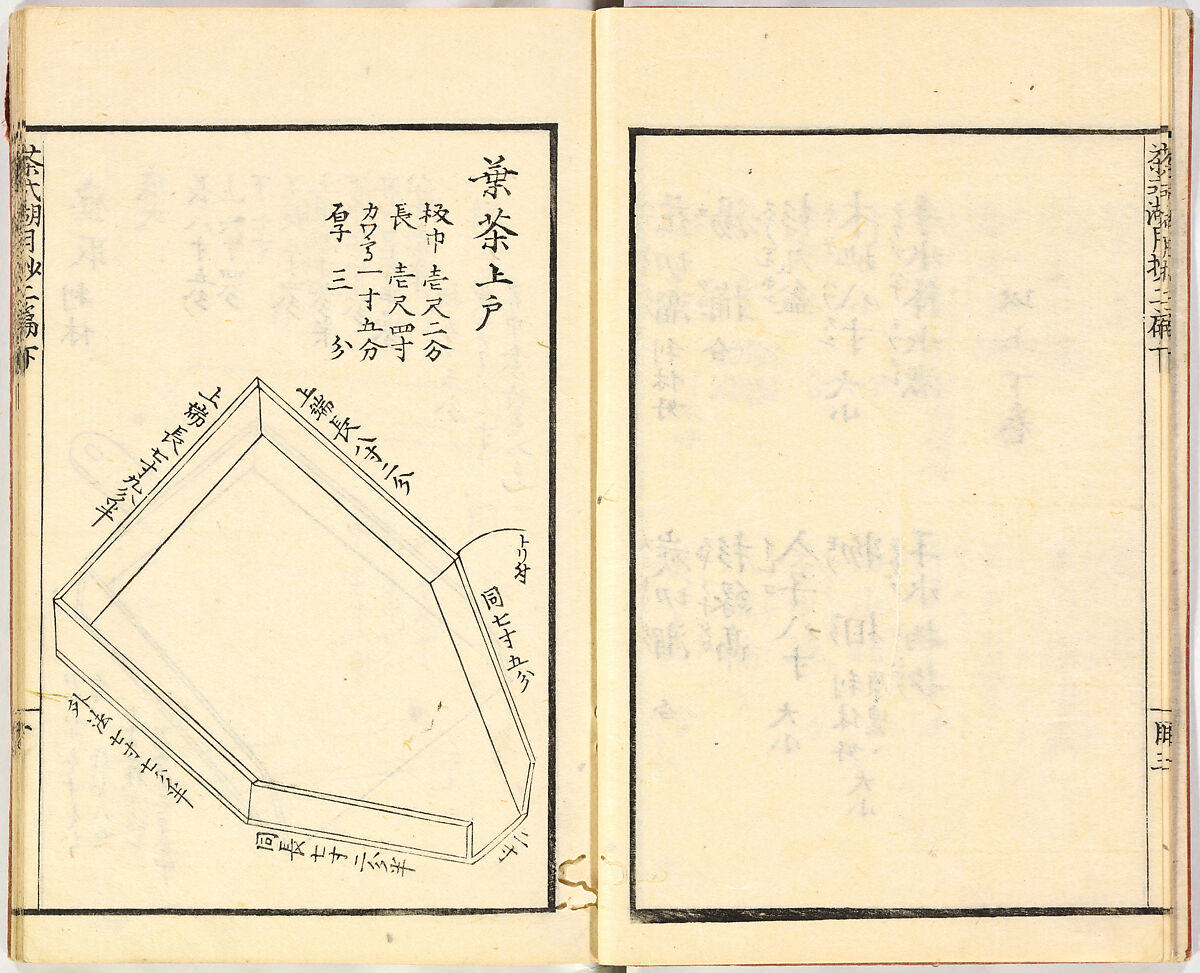 葉茶上戸
板巾壱尺二分
長壱尺四寸
カワ高一寸五分
厚三分
上端長八寸二分
上端長七寸九分半
トリ付
同七寸五分
外法七寸七分半
同長七寸二分半
二寸
茶式湖月抄二篇下